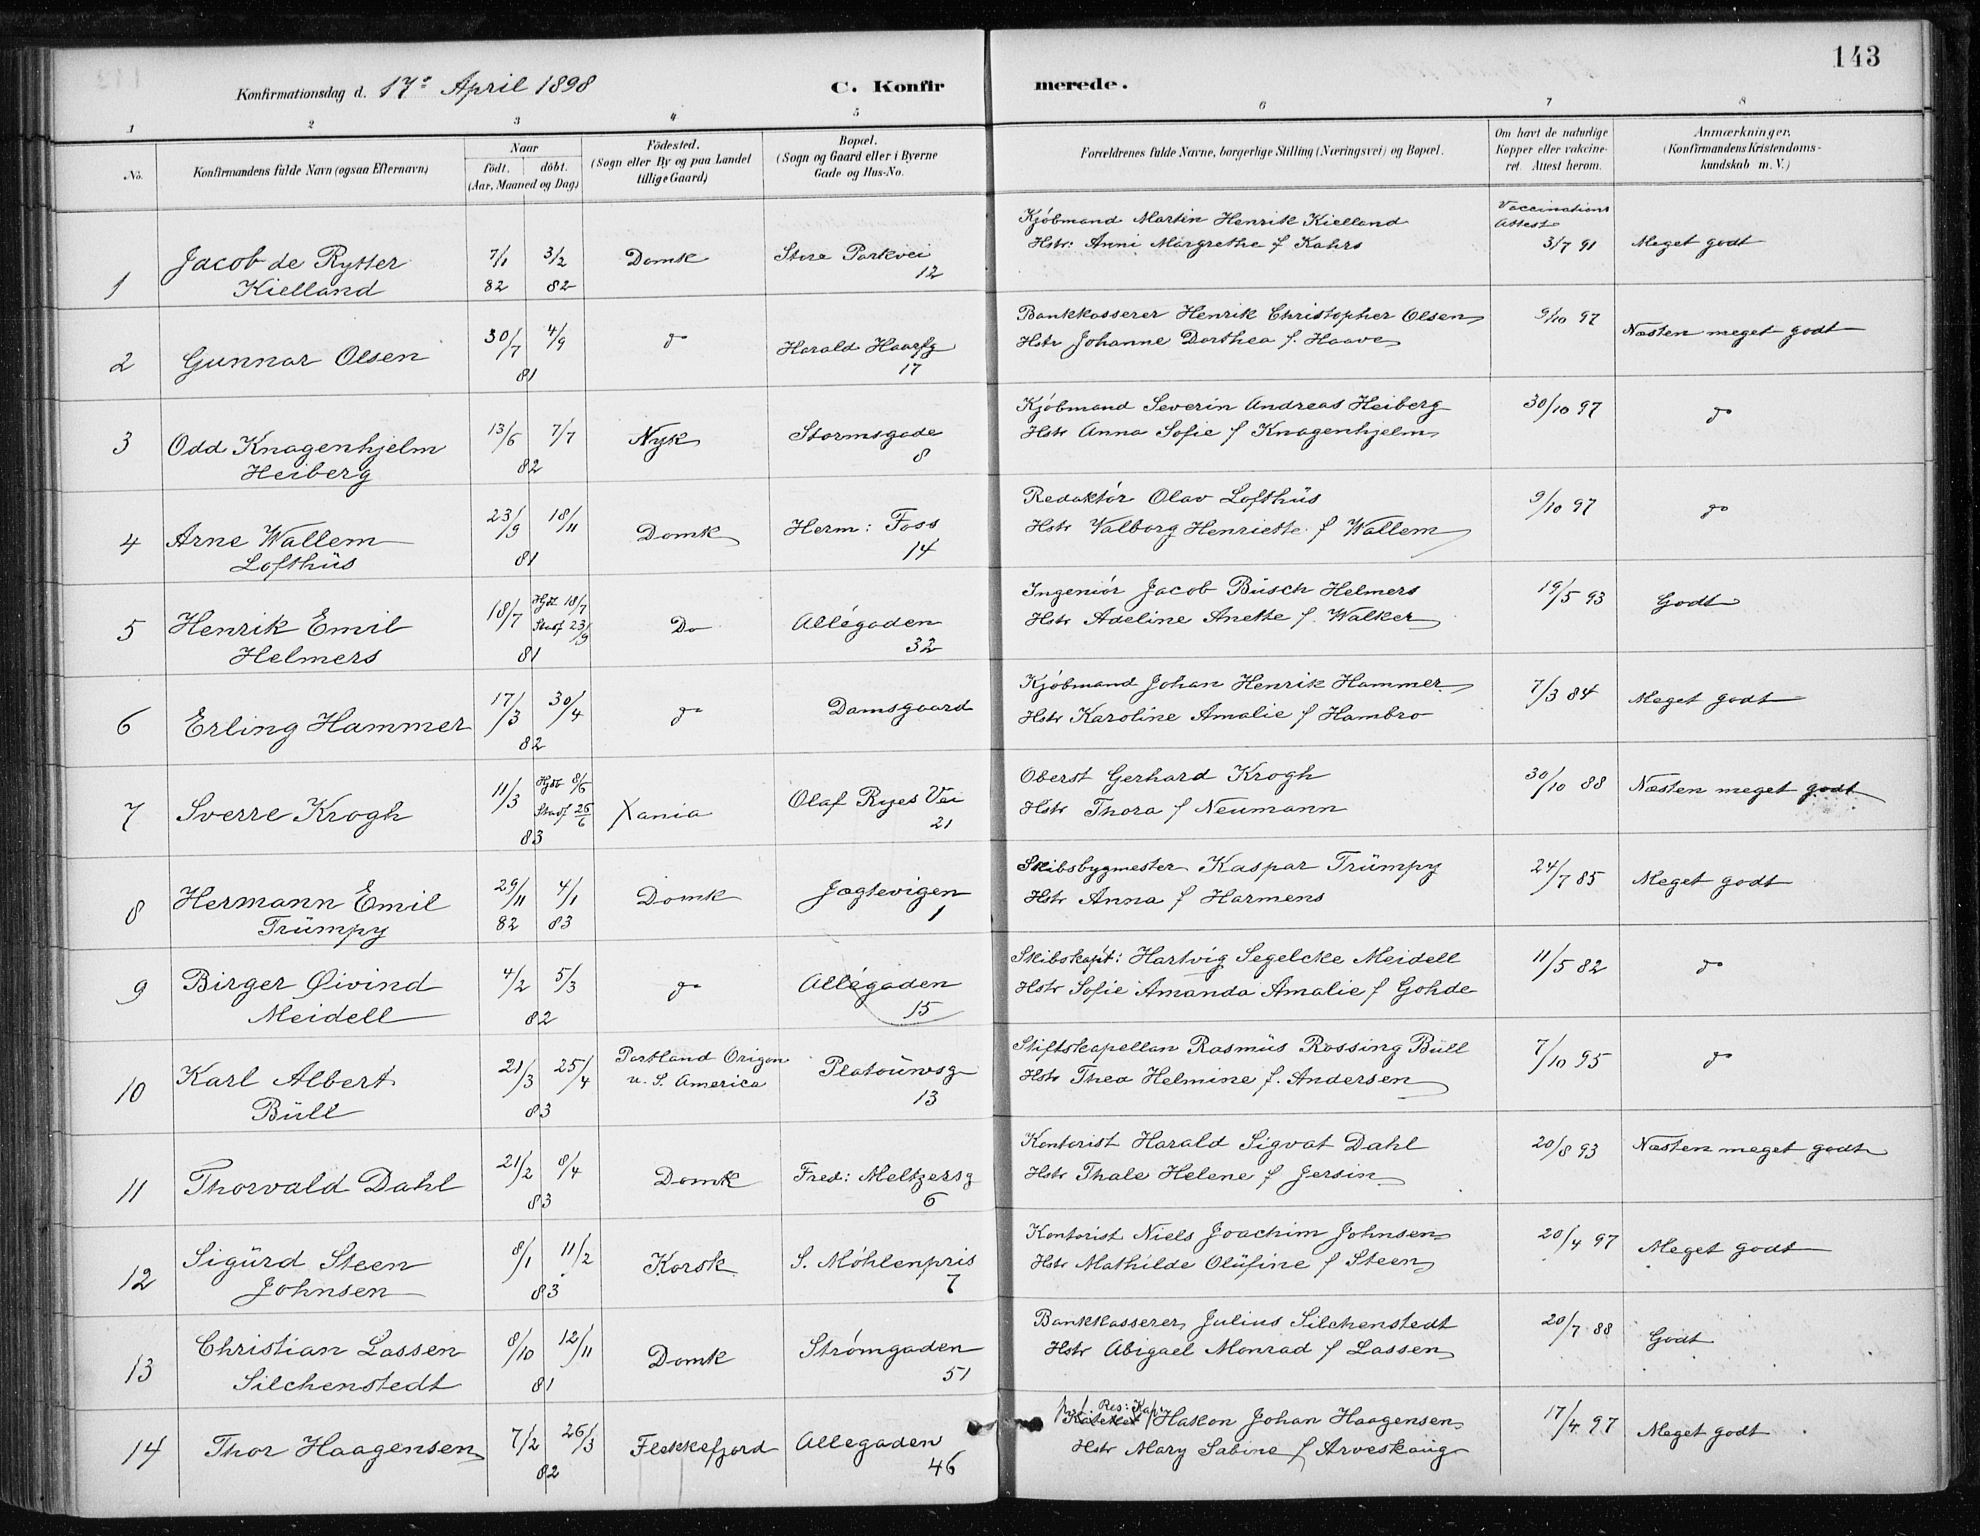 143
Konfirmationsdag d. 17de April 1898 C. Konfirmerede.
1 2 3 4 5 6 7 8
No. Konfirmandens fulde Navn (ogsaa Efternavn) Naar födt. döbt. (Aar, Maaned og Dag) Födested. (Sogn eller By og paa Landet tillige Gaard) Bopæl. (Sogn og Gaard eller i Byerne Gade og Hus-No. Forældrenes fulde Navne, borgerlige Stilling (Næringsvei) og Bopæl. Om havt de naturlige Kopper eller vakcineret. Attest herom. Anmærkninger. (Konfirmandens Kristendomskundskab m. V.)
Kjöbmand Martin Henrik Kielland Vaccinations Attest
1 Jacob de Rytter 7/1 3/2 Domk Store Parkvei Hstr: Anni Margrethe f Kahrs 3/7 91 Meget godt
Kielland 82 82 12
Bankkasserer Henrik Christopher Olsen 9/10 97
2 Gunnar Olsen 30/7 4/9 do Harald Haarfg Hstr Johanne Dorthea f. Haave Næsten meget godt
81 17
Kjöbmand Severin Andreas Heiberg 30/10 97
3 Odd Knagenhjelm 13/6 7/7 Nyk Stormsgade Hstr Anna Sofie f Knagenhjelm do
Heiberg 82 8
Redaktör Olav Lofthüs 9/10 97
4 Arne Wallem 23/9 18/11 Domk Herm: Foss Hstr Valborg Henriette f Wallem do
Lofthüs 81 14
Ingeniör Jacob Büsch Helmers 19/5 93
5 Henrik Emil 18/7 Hjdt 18/7 Stadf 23/9 Do Allégaden Hstr Adeline Anette f. Walker Godt
Helmers 81 32
Kjöbmand Johan Henrik Hammer 7/3 84
6 Erling Hammer 17/3 30/4 do Damsgaard Hstr Karoline Amalie f Hambro Meget godt
82
Oberst Gerhard Krogh 30/10 88
7 Sverre Krogh 11/3 Hjdt 8/5 Stadf 25/6 Xania Olaf Ryes Vei Hstr Thora f Neumann Næsten meget godt
83 21
Skibsbygmester Kaspar Trümpy 24/7 85
8 Hermann Emil 29/11 4/1 Domk Jægtevigen Hstr Anna f Harmens Meget godt
Trümpy 82 83 1
Skibskapt: Hartvig Segelcke Meidell 11/5 82
9 Birger Øivind 4/2 5/3 do Allégaden Hstr Sofie Amanda Amalie f Gohde do
Meidell 82 15
Stiftskapellan Rasmüs Rossing Büll 7/10 95
10 Karl Albert 21/3 25/4 Portland Origon u. S. America Platouwsg Hstr Thea Helmine f. Andersen do
Büll 83 13
Kontorist Harald Sigvat Dahl 20/8 93
11 Thorvald Dahl 21/2 8/4 Domk Fred: Meltzersg Hstr Thale Helene f Jersin Næsten meget godt
83 6
Kontorist Niels Joachim Johnsen 20/4 97
12 Sigürd Steen 8/1 11/2 Korsk. S. Möhlenpris Hstr Mathilde Olüfine f Steen Meget godt
Johnsen 83 7
Bankkasserer Julius Silchenstedt 20/7 88
13 Christian Lassen 8/10 12/11 Domk Strömgaden Hstr Abigael Monrad f Lassen Godt
Silchenstedt 81 51
Res: Kap: Haakon Johan Haagensen 17/4 97
14 Thor Haagensen 7/2 26/3 Flekkefjord Allegaden Hstr Mary Sabine f Arveskoug Meget godt
82 46